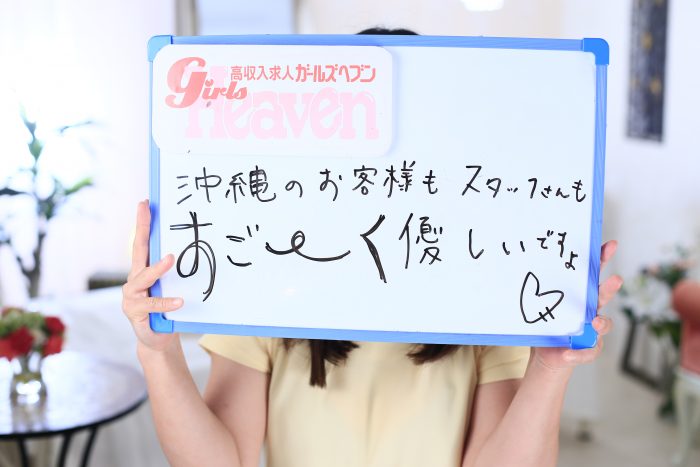 高収入求人ガールズヘブン
Girls
Heaven
沖縄のお客様もスタッフさんも
すご〜く優しいですよ